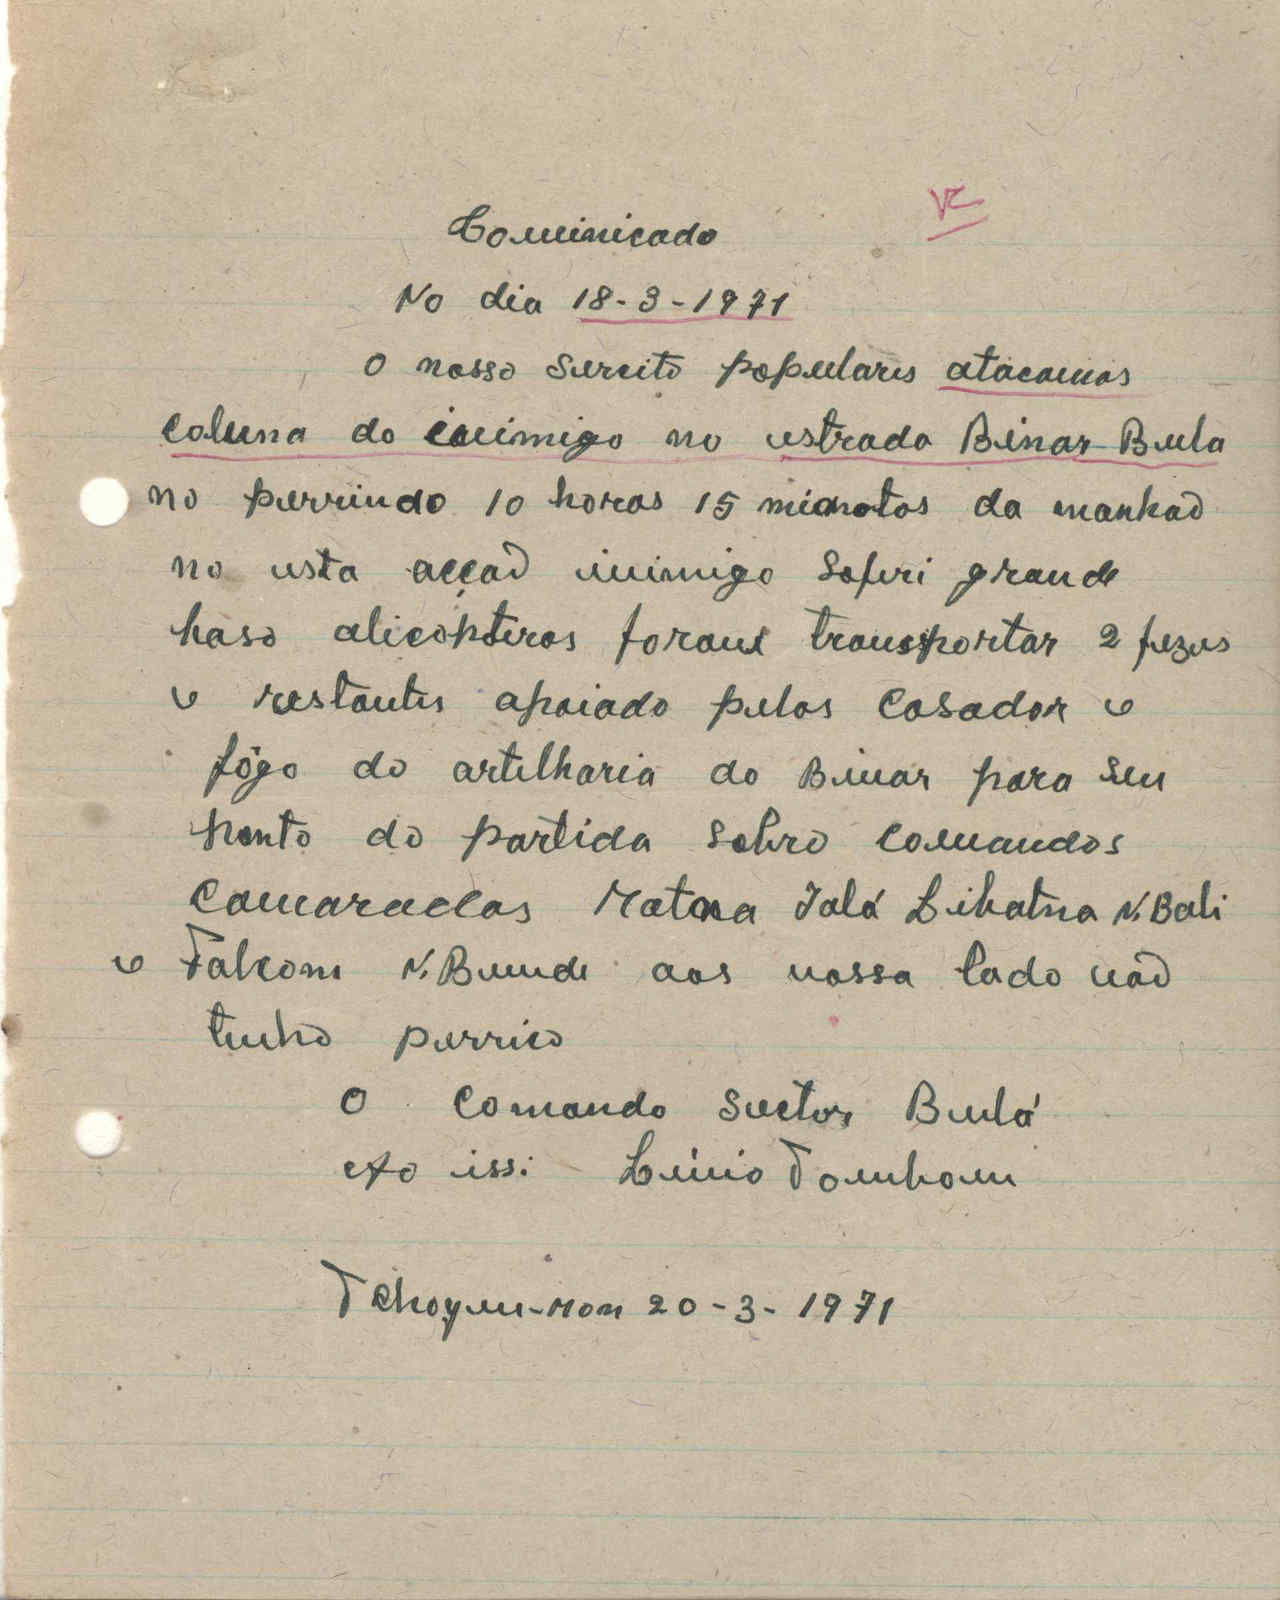 Cominicado
No dia 18-3-1971
O nosso Sercito populares atacamos
coluna do inimigo no estrada Binar-Bula
no perrindo 10 horas 15 minotos da manhaõ
no esta acçaõ inimigo Soferi grande
baso alicópteros foram transportar 2 fezes
e restantes apoiado pelos Casador e
fôgo do artelharia do Binar para seu
ponto do partida sobro comandos
Camaradas Matna Jalá Bihatna N.Bali
e Falcom N.Bunde aos nossa lado naõ
tenho perrico
O Comando Sector Bulá
ass: Lúnio Tomham
Tchogue-mon 20-3-1971